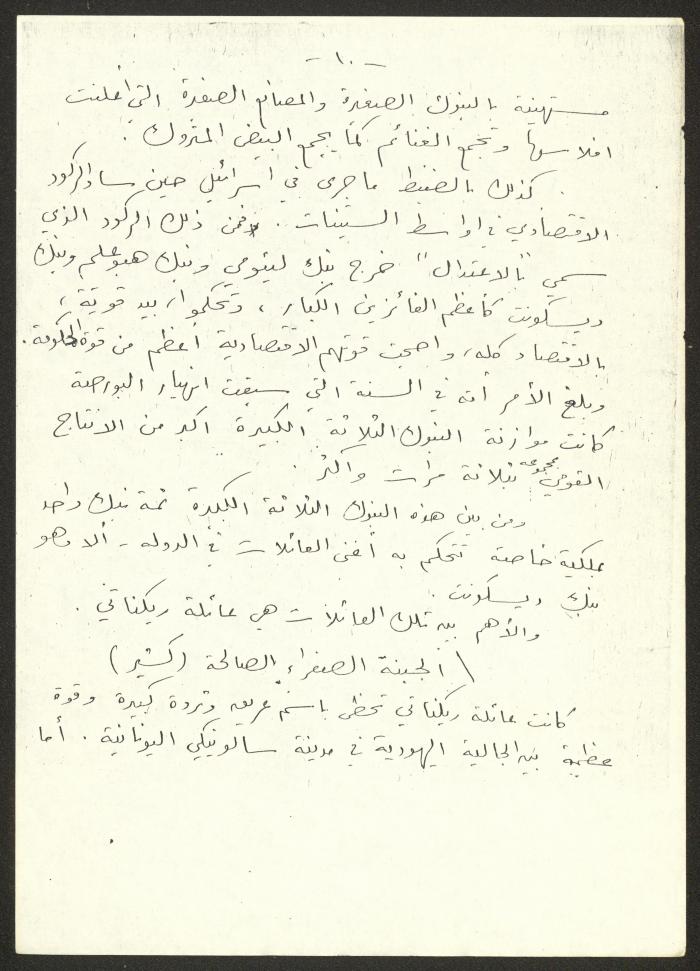 - ١٠ -
مستهينة بالبنوك الصغيرة والمصانع الصغيرة التي أعلنت
افلاسها وتجمع الغنائم كما يجمع البيض المتروك .
كذلك بالضبط ما جرى في اسرائيل حين ساد الركود
الاقتصادي في اواسط الستينات . فمن ذلك الركود الذي
سمي "بالاعتدال" خرج بنك ليئومي وبنك هبوعليم وبنك
ديسكونت كأعظم الفائزين الكبار ، وتحكموا ، بيد قوية ،
بالاقتصاد كله ، واصبحت قوتهم الاقتصادية أعظم من قوة الحكومة .
وبلغ الأمر أنه في السنة التي سبقت انهيار البورصة
كانت موازنة البنوك الثلاثة الكبيرة اكبر من الانتاج
القومي بمجموعه ثلاثة مرات واكثر .
ومن بين هذه البنوك الثلاثة الكبيرة ثمة بنك واحد
بملكية خاصة تتحكم به أغنى العائلات في الدولة - ألا وهو
بنك ديسكونت .
والأهم بين تلك العائلات هي عائلة ريكناتي .
الجبنة الصفراء الصالحة (كشير)
كانت عائلة ريكناتي تحظى باسم عريق وثروة كبيرة وقوة
عظيمة بين الجالية اليهودية في مدينة سالونيكي اليونانية . أما